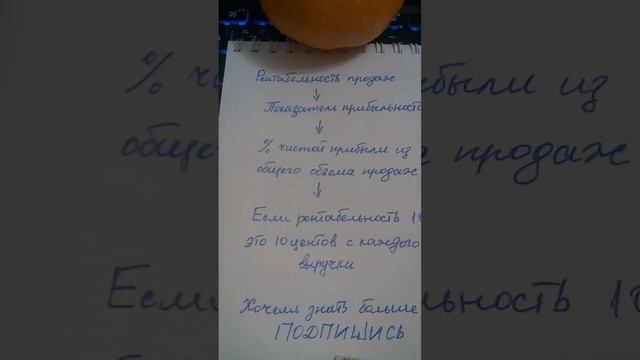 Рентабельность продаж
↓
Показатель прибыльности
↓
% чистой прибыли из
общего объема продаж
↓
Если рентабельность 1
это 10 центов с каждого
выручки
Хочешь знать больше
ПОДПИШИСЬ